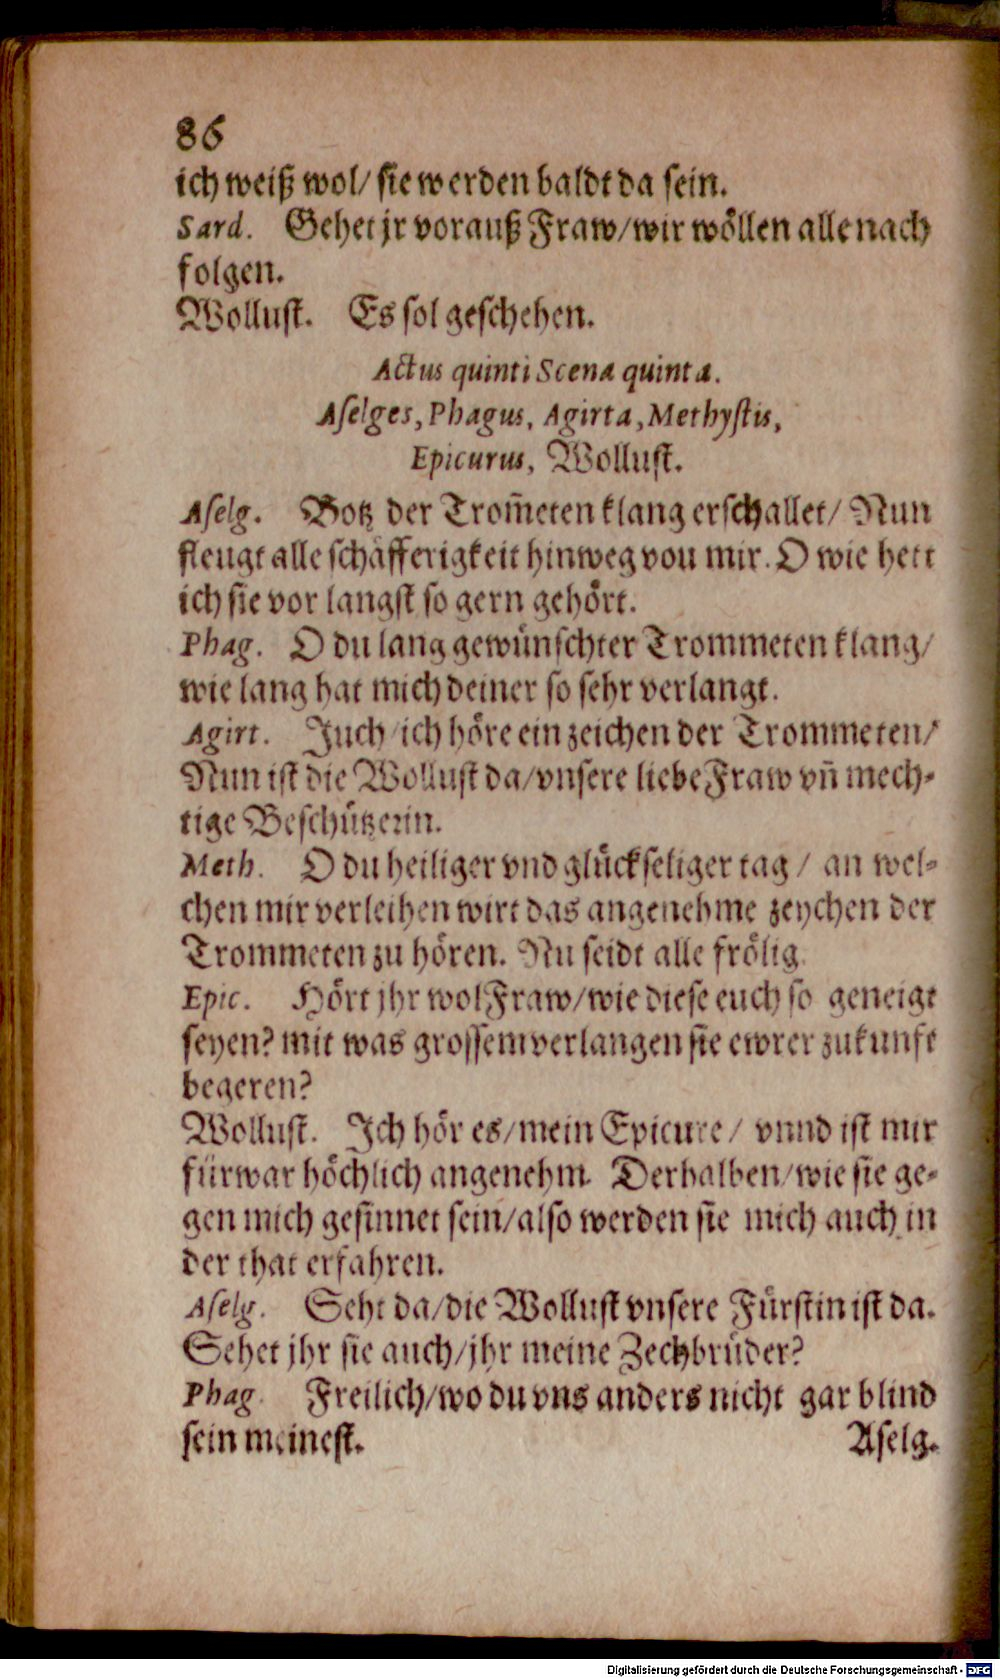 86
ich weiß wol/ sie werden baldt da sein.
Sard. Gehet jr vorauß Fraw/wir wöllen alle nach
folgen.
Wollust. Es sol geschehen.
Actus quinti Scena quinta.
Aselges, Phagus, Agirta, Methystis,
Epicurus, Wollust.
Aselg. Botz der Trom̃eten klang erschallet/ Nun
fleugt alle schäfferigkeit hinweg vou mir. O wie hett
ich sie vor langst so gern gehört.
Phag. O du lang gewünschter Trommeten klang/
wie lang hat mich deiner so sehr verlangt.
Agirt. Juch/ich höre ein zeichen der Trommeten/
Nun ist die Wollust da/vnsere liebe Fraw vñ mech-
tige Beschützerin.
Meth. O du heiliger vnd glückseliger tag/ an wel-
chen mir verleihen wirt das angenehme zeychen der
Trommeten zu hören. Nu seidt alle frölig.
Epic. Hört jhr wol Fraw/wie diese euch so geneigt
seyen? mit was grossem verlangen sie ewrer zukunft
begeren?
Wollust. Ich hör es/mein Epicure/ vnnd ist mir
fürwar höchlich angenehm. Derhalben/wie sie ge-
gen mich gesinnet sein/also werden sie mich auch in
der that erfahren.
Aselg. Seht da/die Wollust vnsere Fürstin ist da.
Sehet jhr sie auch/jhr meine Zechbrüder?
Phag. Freilich/wo du vns anders nicht gar blind
sein meinest.
Aselg.
Digitalisierung gefördert durch die Deutsche Forschungsgemeinschaft - DFG